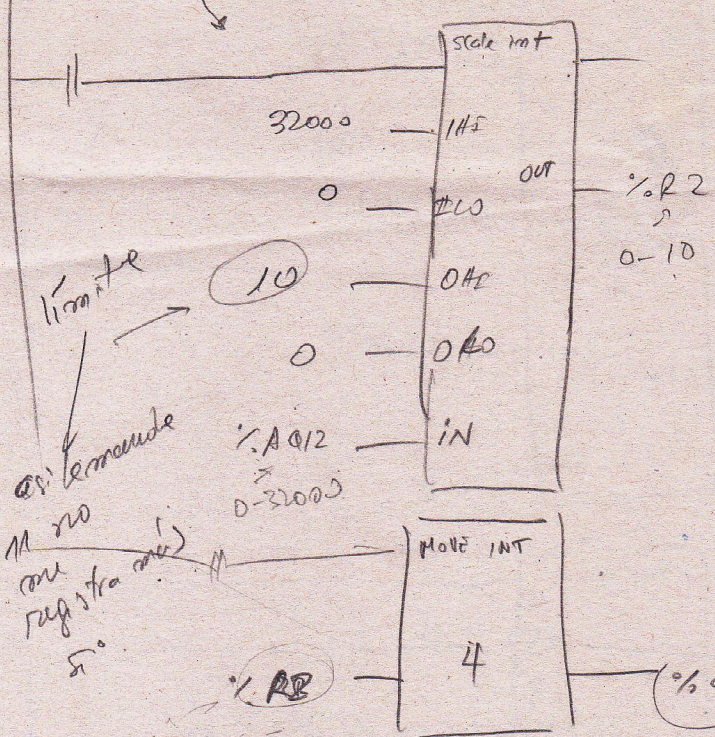 scale int
32000 IHI
OUT %R2
0 ILO
0-10
límite
10 OHI
0 OLO
%AQ12 IN
0-32000
asi lemande
11 no
me
registra más
MOVE INT
4
%R2
%